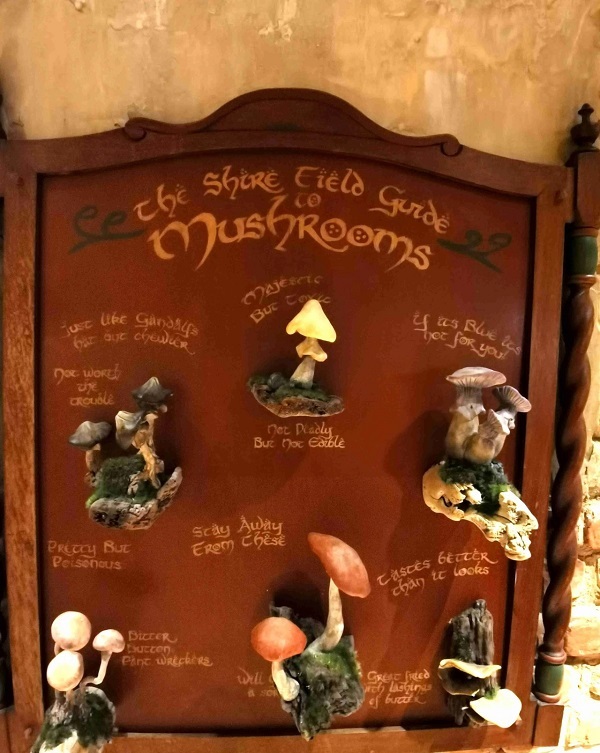 The Shire Field Guide
to
Mushrooms
Majestic
But Toxic
Just like Gandalf's
hat but chewier
If its Blue its
not for you!
Not worth
the
trouble
Not Deadly
But Not Edible
Stay Away
From These
Pretty But
Poisonous
Tastes better
than it looks
Bitter
Button
Pant wreckers
Will
a
Great fried
with lashings
of butter